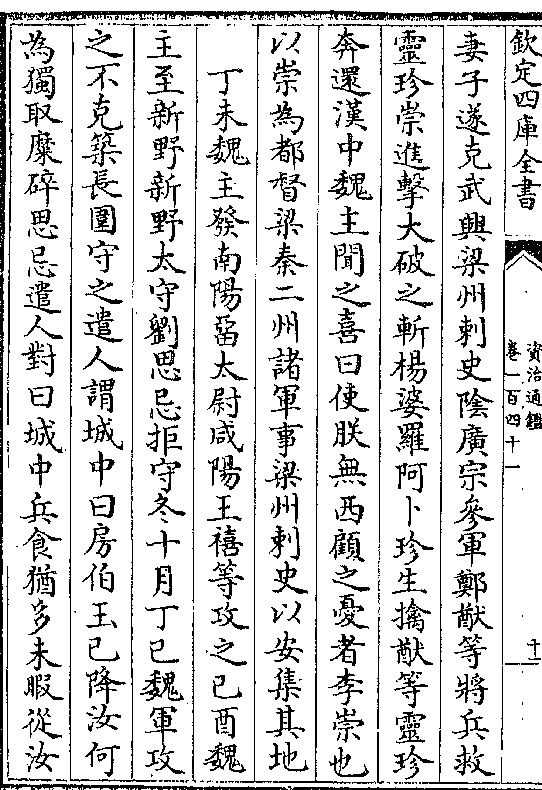 欽定四庫全書
資治通鑑
卷一百四十一
十二
妻子遂克武興梁州刺史陰廣宗參軍鄭猷等將兵救
靈珍崇進擊大破之斬楊婆羅阿卜珍生擒猷等靈珍
奔還漢中魏主聞之喜曰使朕無西顧之憂者李崇也
以崇為都督梁秦二州諸軍事梁州刺史以安集其地
丁未魏主發南陽留太尉咸陽王禧等攻之己酉魏
主至新野新野太守劉思忌拒守冬十月丁巳魏軍攻
之不克築長圍守之遣人謂城中曰房伯玉已降汝何
為獨取糜碎思忌遣人對曰城中兵食猶多未暇從汝